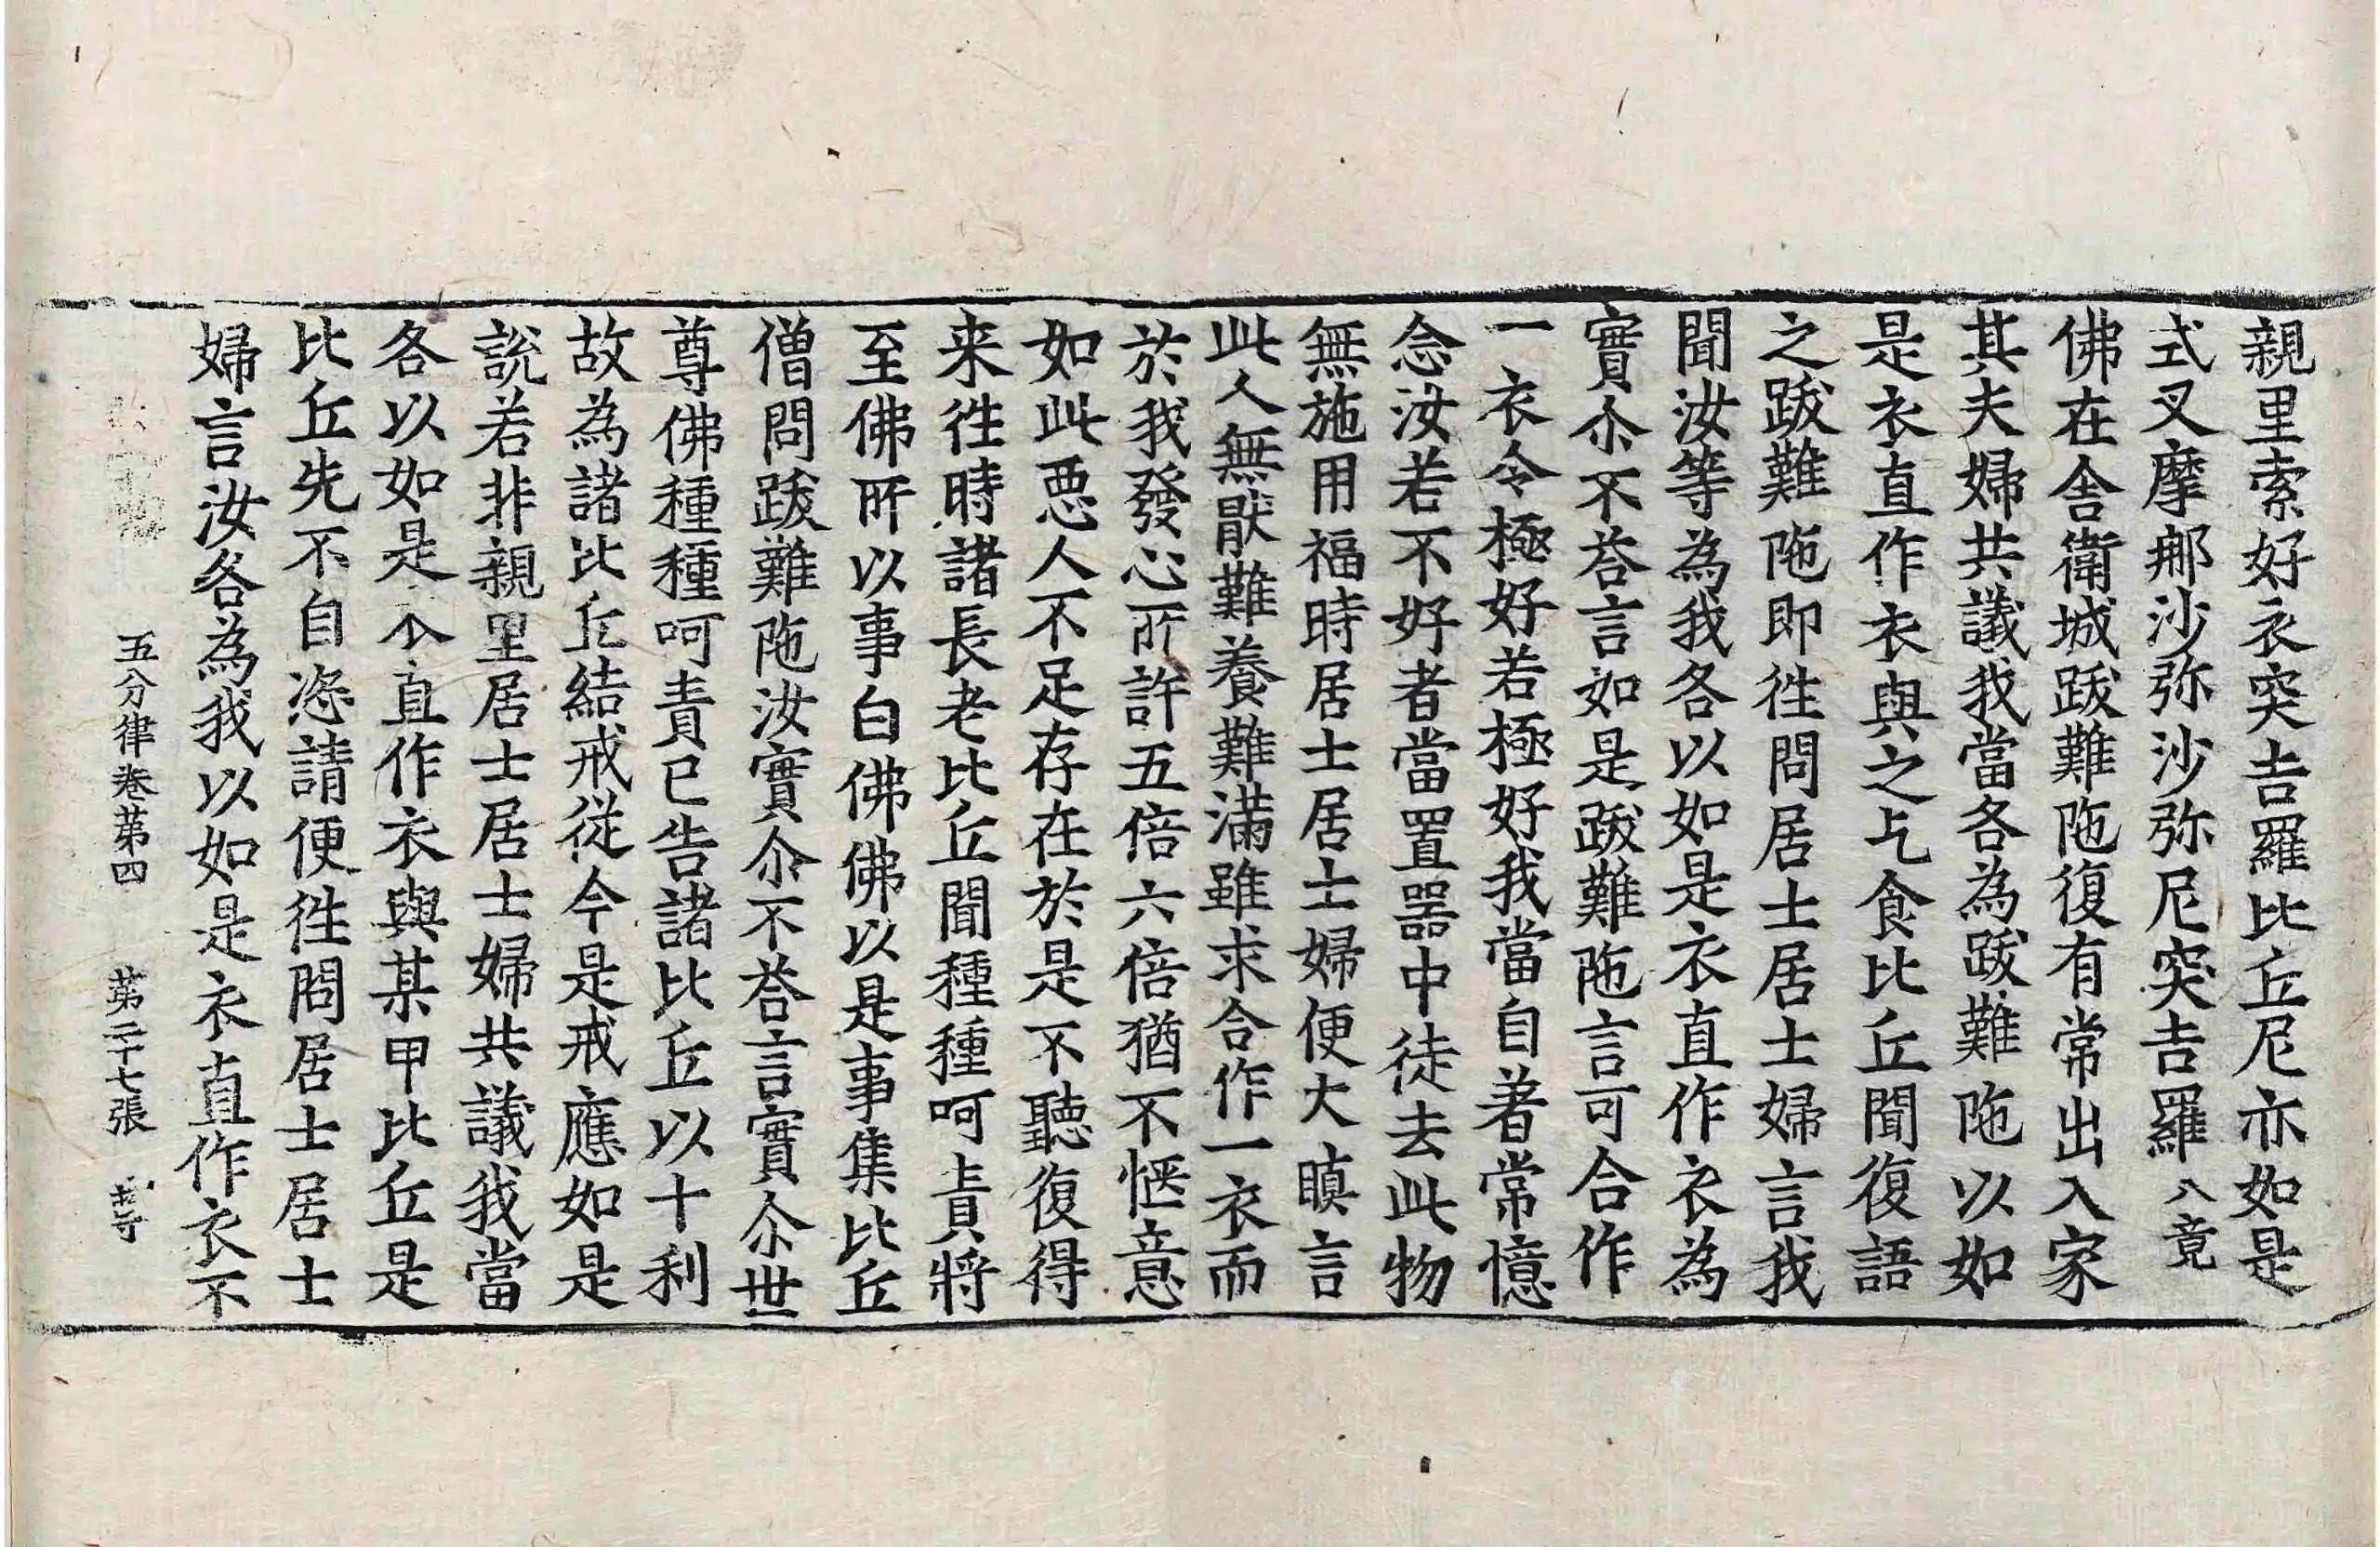 親里索好衣突吉羅比丘尼亦如是
式叉摩那沙弥沙弥尼突吉羅八竟
佛在舍衛城跋難陁復有常出入家
其夫婦共議我當各為跋難陁以如
是衣直作衣與之乞食比丘聞復語
之跋難陁即往問居士居士婦言我
聞汝等為我各以如是衣直作衣為
實尒不荅言如是跋難陁言可合作
一衣令極好若極好我當自著常憶
念汝若不好者當置器中徒去此物
無施用福時居士居士婦便大瞋言
此人無猒難養難滿雖求合作一衣而
於我發心所許五倍六倍猶不愜意
如此悪人不足存在於是不聽復得
来往時諸長老比丘聞種種呵責將
至佛所以事白佛佛以是事集比丘
僧問跋難陁汝實尒不荅言實尒世
尊佛種種呵責已告諸比丘以十利
故為諸比丘結戒從今是戒應如是
說若非親里居士居士婦共議我當
各以如是衣直作衣與某甲比丘是
比丘先不自恣請便往問居士居士
婦言汝各為我以如是衣直作衣不
五分律卷第四 第二十七張